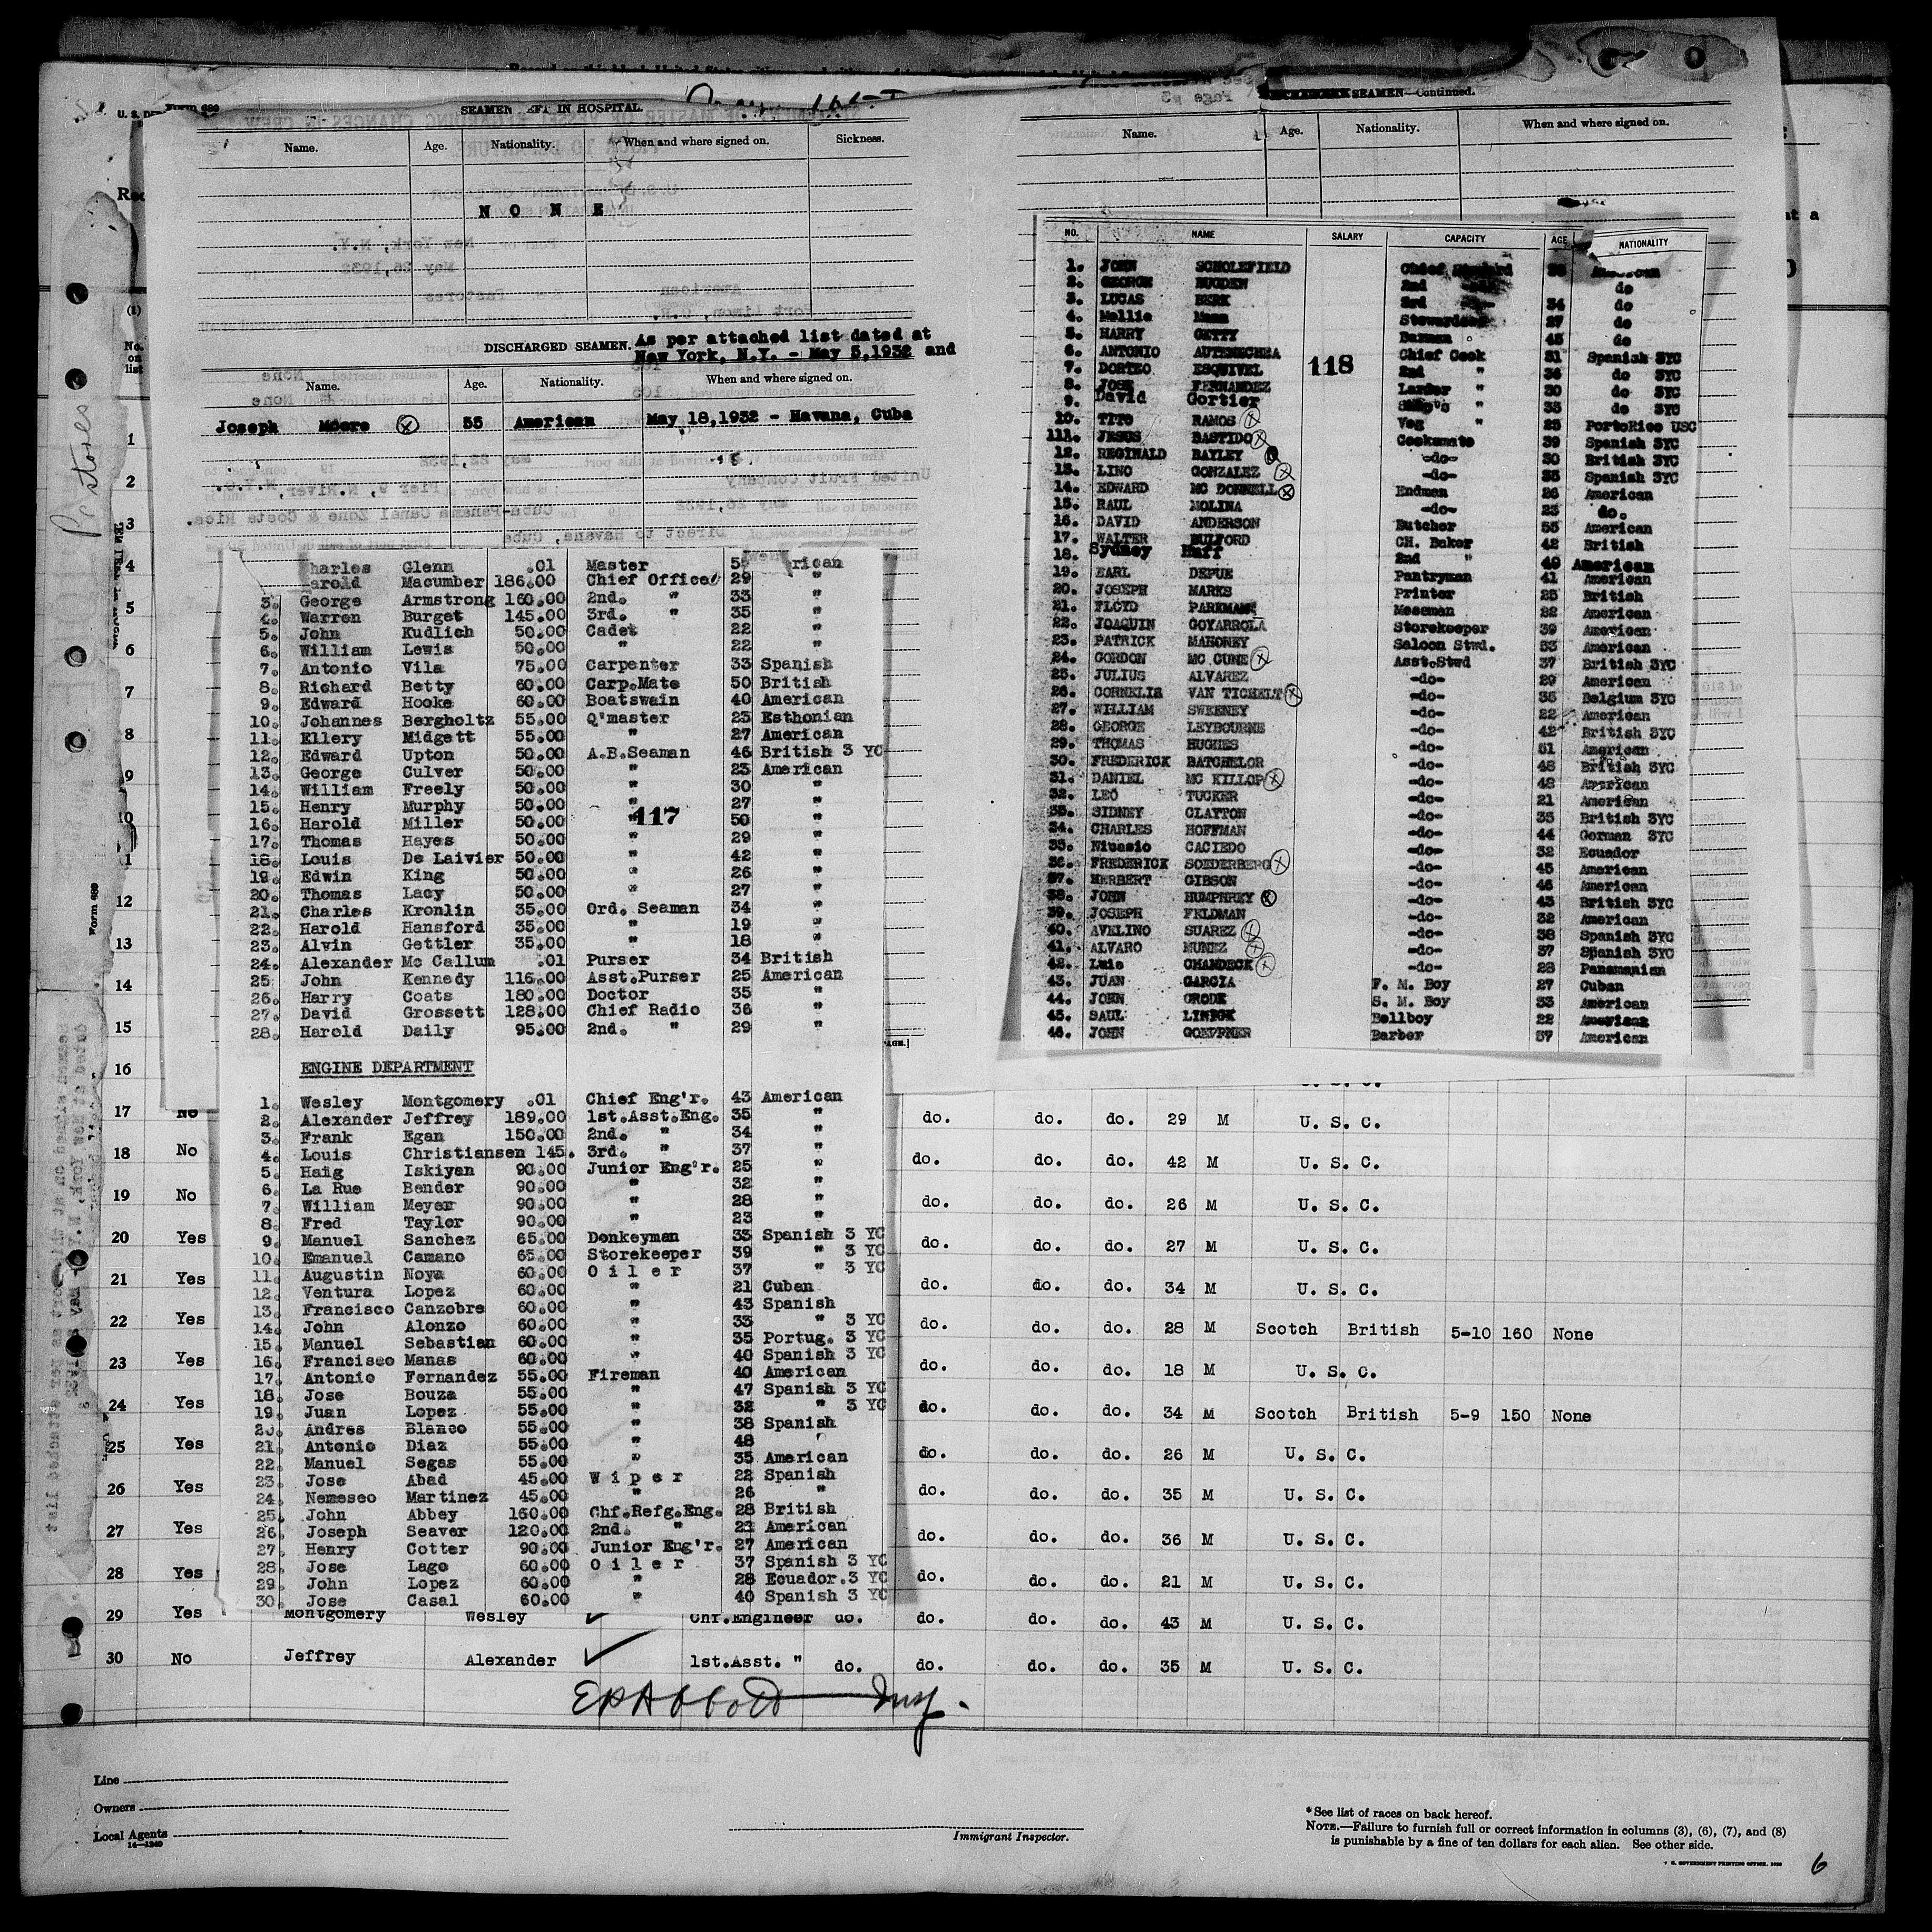 Form 689
SEAMEN LEFT IN HOSPITAL.
Name. Age. Nationality. When and where signed on. Sickness.
N O N E
DISCHARGED SEAMEN. As per attached list dated at
New York, N.Y. - May 5,1932 and
Name. Age. Nationality. When and where signed on.
Joseph Moore 55 American May 18,1932 - Havana, Cuba
harles Glenn .01 Master 55 rican
arold Macumber 186.00 Chief Officer 29 "
3. George Armstrong 160.00 2nd. " 33 "
4. Warren Burget 145.00 3rd. " 35 "
5. John Kudlich 50.00 Cadet 22 "
6. William Lewis 50.00 " 22 "
7. Antonio Vila 75.00 Carpenter 33 Spanish
8. Richard Betty 60.00 Carp.Mate 50 British
9. Edward Hooke 60.00 Boatswain 40 American
10. Johannes Bergholtz 55.00 Q'master 25 Esthonian
11. Ellery Midgett 55.00 " 27 American
12. Edward Upton 50.00 A.B.Seaman 46 British 3 YC
13. George Culver 50.00 " 23 American
14. William Freely 50.00 " 30 "
15. Henry Murphy 50.00 " 27 "
16. Harold Miller 50.00 " 50 "
117
17. Thomas Hayes 50.00 " 29 "
18. Louis De Laivier 50.00 " 42 "
19. Edwin King 50.00 " 26 "
20. Thomas Lacy 50.00 " 27 "
21. Charles Kronlin 35.00 Ord. Seaman 34 "
22. Harold Hansford 35.00 " 19 "
23. Alvin Gettler 35.00 " 18 "
24. Alexander Mc Callum .01 Purser 34 British
25 John Kennedy 116.00 Asst.Purser 25 American
26. Harry Coats 180.00 Doctor 35 "
27. David Grossett 128.00 Chief Radio 36 "
28. Harold Daily 95.00 2nd. " 29 "
ENGINE DEPARTMENT
1. Wesley Montgomery .01 Chief Eng'r. 43 American
2. Alexander Jeffrey 189.00 1st.Asst.Eng. 35 "
3. Frank Egan 150.00 2nd. " 34 "
4. Louis Christiansen 145. 3rd. " 37 "
5. Haig Iskiyan 90.00 Junior Eng'r. 25 "
6. La Rue Bender 90.00 " 32 "
7. William Meyer 90.00 " 28 "
8. Fred Taylor 90.00 " 23 "
9. Manuel Sanchez 65.00 Donkeyman 33 Spanish 3 YC
10. Emanuel Camano 65.00 Storekeeper 39 " 3 YC
11. Augustin Noya 60.00 O i l e r 37 " 3 YC
12. Ventura Lopez 60.00 " 21 Cuban
13. Francisco Canzobre 60.00 " 43 Spanish
14. John Alonzo 60.00 " 33 " 3 YC
15. Manuel Sebastian 60.00 " 35 Portug. 3 YC
16. Francisco Manas 60.00 " 40 Spanish 3 YC
17. Antonio Fernandez 55.00 Fireman 40 American
18. Jose Bouza 55.00 " 47 Spanish 3 YC
19. Juan Lopez 55.00 " 32 " 3 YC
20. Andres Blanco 55.00 " 38 Spanish
21. Antonio Diaz 55.00 " 48 "
22. Manuel Segas 55.00 " 35 American
23. Jose Abad 45.00 W i p e r 22 Spanish
24. Nemeseo Martinez 45.00 " 26 "
25. John Abbey 160.00 Chf.Refg.Eng. 28 British
26. Joseph Seaver 120.00 2nd. " 23 American
27. Henry Cotter 90.00 Junior Eng'r. 27 American
28. Jose Lago 60.00 O i l e r 37 Spanish 3 YC
29. John Lopez 60.00 " 28 Ecuador.3 YC
30. Jose Casal 60.00 " 40 Spanish 3 YC
SEAMEN—Continued.
Name. Age. Nationality. When and where signed on.
NO. NAME SALARY CAPACITY AGE NATIONALITY
1. JOHN SCHOLEFIELD Chief
2. GEORGE BUGDEN 2nd do
3. LUCAS BERK 3rd 34 do
4. Mellie Mann Stewardess 27 do
5. HARRY GETTY Barman 45 do
6. ANTONIO AUTENECHEA Chief Cook 51 Spanish 3YC
118
7. DORTEO ESQUIVEL 2nd " 36 do 3YC
8. JOSE FERNANDEZ Larder " 30 do 3YC
9. David Gortier " 35 do 3YC
10. TITO RAMOS Veg " 25 PortoRico USC
111. JESUS BASTIDO Cooksmate 39 Spanish 3YC
12. REGINALD BAYLEY -do- 30 British 3YC
13. LINO GONZALEZ -do- 35 Spanish 3YC
14. EDWARD MC DONNELL Endman 26 American
15. RAUL MOLINA -do- 23 do.
16. DAVID ANDERSON Butcher 55 American
17. WALTER BULFORD CH. Baker 42 British
18. Sydney Huff 2nd " 49 American
19. EARL DEPUE Pantryman 41 American
20. JOSEPH MARKS Printer 25 British
21. FLOYD PARKMAN Messman 22 American
22. JOAQUIN GOYARROLA Storekeeper 39 American
23. PATRICK MAHONEY Saloon Stwd. 53 American
24. GORDON MC CUNE Asst.Stwd 37 British 3YC
25. JULIUS ALVAREZ -do- 29 American
26. CORNELIS VAN TICHELT -do- 35 Belgium 3YC
27. WILLIAM SWEENEY -do- 22 American
28. GEORGE LEYBOURNE -do- 42 British 3YC
29. THOMAS HUGHES -do- 51 American
30. FREDERICK BATCHELOR -do- 48 British 3YC
31. DANIEL MC KILLOP -do- 48 American
32. LEO TUCKER -do- 21 American
33. SIDNEY CLAYTON -do- 35 British 3YC
34. CHARLES HOFFMAN -do- 44 German 3YC
35. Nicasio CACIEDO -do- 32 Ecuador
36. FREDERICK SOEDERBERG -do- 45 American
37. HERBERT GIBSON -do- 46 American
38. JOHN HUMPHREY -do- 43 British 3YC
39. JOSEPH FELDMAN -do- 32 American
40. AVELINO SUAREZ -do- 38 Spanish 3YC
41. ALVARO MUNEZ -do- 37 Spanish 3YC
42. Luis CHANDECK -do- 28 Panamanian
43. JUAN GARCIA F. M. Boy 27 Cuban
44. JOHN GRODE S. M. Boy 33 American
45. SAUL LINICK Bellboy 22 American
46. JOHN GOEPPNER Barber 57 American
No. on list
1
2
3
4
5
6
7
8
9
10
11
12
13
14
15
16
17 No do. do. do. 29 M U. S. C.
18 No do. do. do. 42 M U. S. C.
19 No do. do. do. 26 M U. S. C.
20 Yes do. do. do. 27 M U. S. C.
21 Yes do. do. do. 34 M U. S. C.
22 Yes do. do. do. 28 M Scotch British 5-10 160 None
23 Yes do. do. do. 18 M U. S. C.
24 Yes do. do. do. 34 M Scotch British 5-9 150 None
25 Yes do. do. do. 26 M U. S. C.
26 Yes do. do. do. 35 M U. S. C.
27 Yes do. do. do. 36 M U. S. C.
28 Yes do. do. do. 21 M U. S. C.
29 Yes Montgomery Wesley Chf.Engineer do. do. do. do. 43 M U. S. C.
30 No Jeffrey Alexander 1st.Asst. " do. do. do. do. 35 M U. S. C.
Line
Owners
Local Agents
14—1240
Immigrant Inspector.
* See list of races on back hereof.
NOTE.—Failure to furnish full or correct information in columns (3), (6), (7), and (8)
is punishable by a fine of ten dollars for each alien. See other side.
6